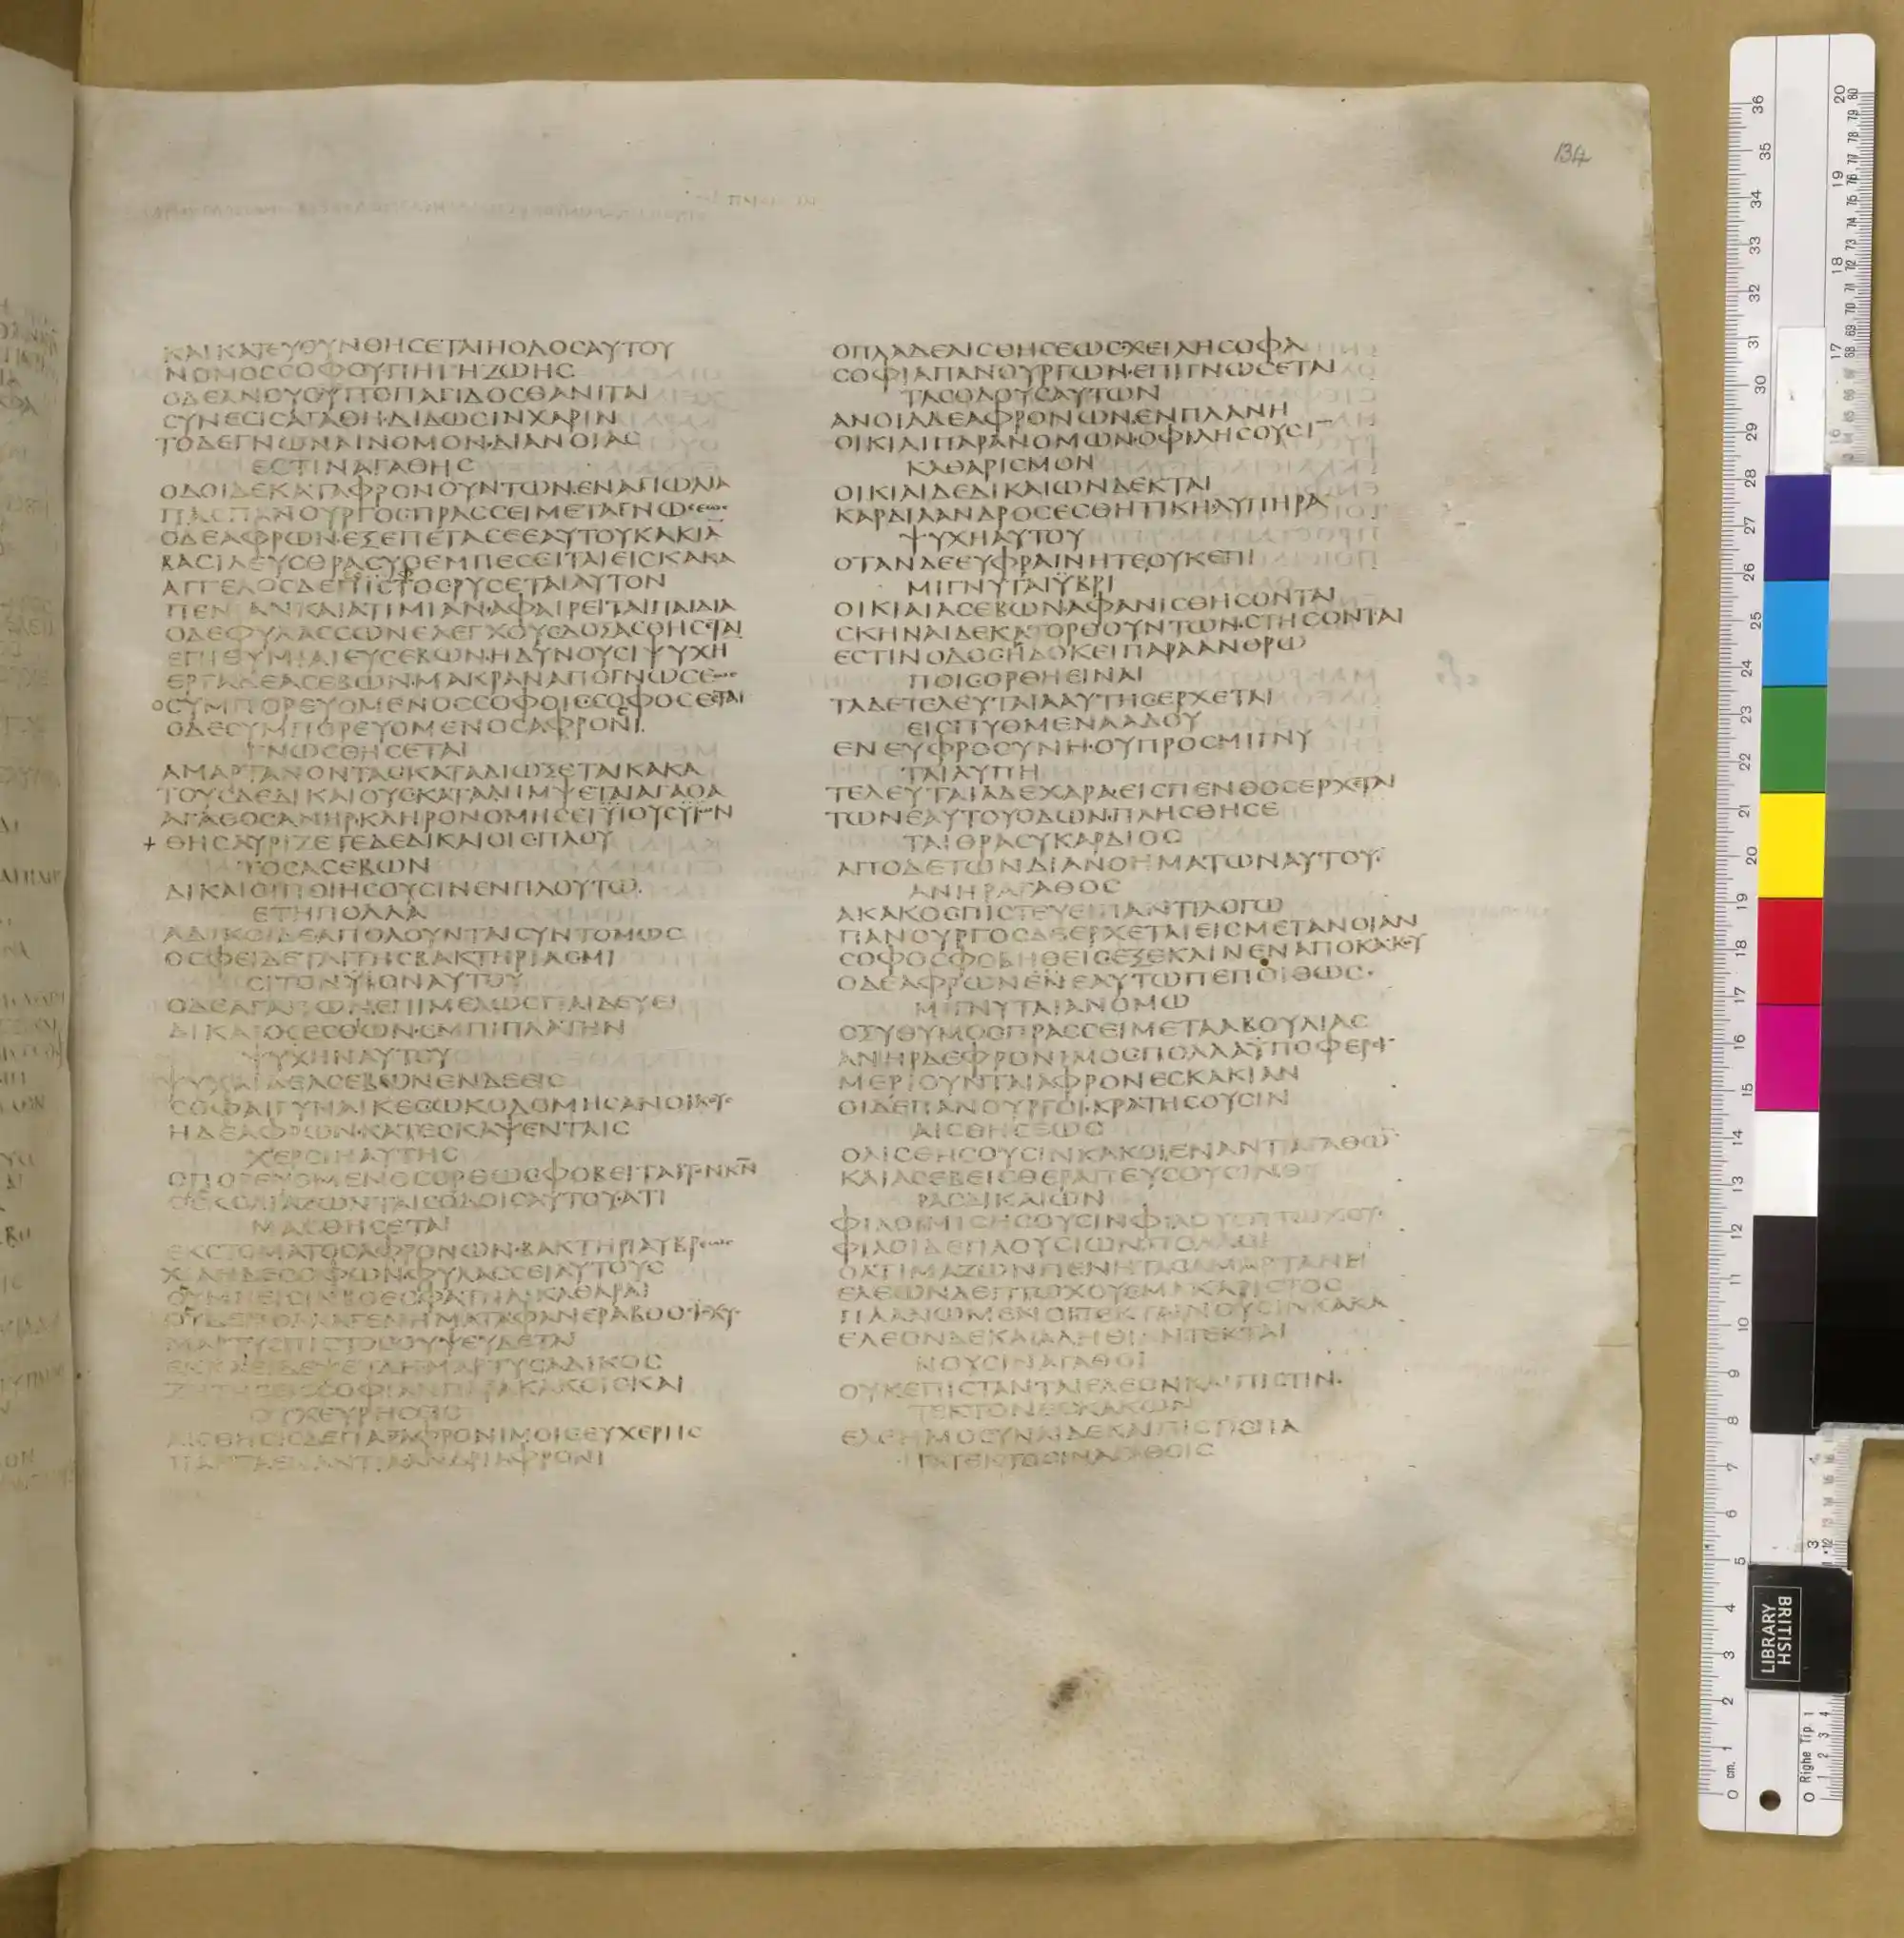 134
ΚΑΙΚΑΤΕΥΘΥΝΘΗCΕΤΑΙΗΟΔΟCΑΥΤΟΥ
ΝΟΜΟCCΟΦΟΥΠΗΓΗΖΩΗC
ΟΔΕΑΝΟΥCΥΠΟΠΑΓΙΔΟCΘΑΝΙΤΑΙ
CΥΝΕCΙCΑΓΑΘΗ·ΔΙΔΩCΙΝΧΑΡΙΝ
ΤΟΔΕΓΝΩΝΑΙΝΟΜΟΝ·ΔΙΑΝΟΙΑC
ΕCΤΙΝΑΓΑΘΗC
ΟΔΟΙΔΕΚΑΤΑΦΡΟΝΟΥΝΤΩΝ·ΕΝΑΠΩΛΙΑ
ΠΑCΠΑΝΟΥΡΓΟCΠΡΑCCΕΙΜΕΤΑΓΝΩCΕΩC
ΟΔΕΑΦΡΩΝ·ΕΞΕΠΕΤΑCΕΕΑΥΤΟΥΚΑΚΙΑ̅
ΒΑCΙΛΕΥCΘΡΑCΥCΕΜΠΕCΕΙΤΑΙΕΙCΚΑΚΑ
ΑΓΓΕΛΟCΔΕΠΙCΤΟCΡΥCΕΤΑΙΑΥΤΟΝ
ΠΕΝΙΑΝΚΑΙΑΤΙΜΙΑΝ·ΑΦΑΙΡΕΙΤΑΙΠΑΙΔΙΑ
ΟΔΕΦΥΛΑCCΩΝΕΛΕΓΧΟΥCΔΟΞΑCΘΗCΕΤΑΙ
ΕΠΙΘΥΜΙΑΙΕΥCΕΒΩΝ·ΗΔΥΝΟΥCΙΨΥΧΗ
ΕΡΓΑΔΕΑCΕΒΩΝ·ΜΑΚΡΑΝΑΠΟΓΝΩCΕΩC
ΟCΥΜΠΟΡΕΥΟΜΕΝΟCCΟΦΟΙCCΟΦΟCΕCΤΑΙ
ΟΔΕCΥΜΠΟΡΕΥΟΜΕΝΟCΑΦΡΟCΙ
ΓΝΩCΘΗCΕΤΑΙ
ΑΜΑΡΤΑΝΟΝΤΑCΚΑΤΑΔΙΩΞΕΤΑΙΚΑΚΑ
ΤΟΥCΔΕΔΙΚΑΙΟΥCΚΑΤΑΛΙΜΨΕΤΑΙΑΓΑΘΑ
ΑΓΑΘΟCΑΝΗΡ·ΚΛΗΡΟΝΟΜΗCΕΙΫΙΟΥCΫΙΩΝ
+ ΘΗCΑΥΡΙΖΕΤΕΔΕΔΙΚΑΙΟΙCΠΛΟΥ
ΤΟCΑCΕΒΩΝ
ΔΙΚΑΙΟΙΠΟΙΗCΟΥCΙΝΕΝΠΛΟΥΤΩ·
ΕΤΗΠΟΛΛΑ
ΑΔΙΚΟΙΔΕΑΠΟΛΟΥΝΤΑΙCΥΝΤΟΜΩC
ΟCΦΕΙΔΕΤΑΙΤΗCΒΑΚΤΗΡΙΑCΜΙ
CΙΤΟΝΥΙΟΝΑΥΤΟΥ
ΟΔΕΑΓΑΠΩΝ·ΕΠΙΜΕΛΩCΠΑΙΔΕΥΕΙ
ΔΙΚΑΙΟCΕCΘΩΝ·ΕΜΠΙΠΛΑΤΗΝ
ΨΥΧΗΝΑΥΤΟΥ
ΨΥΧΑΙΔΕΑCΕΒΩΝΕΝΔΕΕΙC
CΟΦΑΙΓΥΝΑΙΚΕCΩΚΟΔΟΜΗCΑΝΟΙΚΟΥC
ΗΔΕΑΦΡΩΝ·ΚΑΤΕCΚΑΨΕΝΤΑΙC
ΧΕΡCΙΝΑΥΤΗC
ΟΠΟΡΕΥΟΜΕΝΟCΟΡΘΩCΦΟΒΕΙΤΑΙΤΟΝΚ̅Ν̅
ΟΔΕCΚΟΛΙΑΖΩΝΤΑΙCΟΔΟΙCΑΥΤΟΥ·ΑΤΙ
ΜΑCΘΗCΕΤΑΙ
ΕΚCΤΟΜΑΤΟCΑΦΡΟΝΩΝ·ΒΑΚΤΗΡΙΑΥΒΡΕΩC
ΧΙΛΗΔΕCΟΦΩΝ·ΦΥΛΑCCΕΙΑΥΤΟΥC
ΟΥΜΗΕΙCΙΝΒΟΕCΦΑΤΝΑΙΚΑΘΑΡΑΙ
ΟΥΔΕΠΟΛΛΑΓΕΝΗΜΑΤΑΦΑΝΕΡΑΒΟΟCΙCΧΥC
ΜΑΡΤΥCΠΙCΤΟCΟΥΨΕΥΔΕΤΑΙ
ΕΚΚΑΙΕΙΔΕΨΕΥΔΗΜΑΡΤΥCΑΔΙΚΟC
ΖΗΤΗCΕΙCCΟΦΙΑΝΠΑΡΑΚΑΚΟΙCΚΑΙ
ΟΥΧΕΥΡΗCΕΙC
ΑΙCΘΗCΙCΔΕΠΑΡΑΦΡΟΝΙΜΟΙCΕΥΧΕΡΗC
ΠΑΝΤΑΕΝΑΝΤΙΑΑΝΔΡΙΑΦΡΟΝΙ
ΟΠΛΑΔΕΑΙCΘΗCΕΩC·ΧΕΙΛΗCΟΦΑ
CΟΦΙΑΠΑΝΟΥΡΓΩΝ·ΕΠΙΓΝΩCΕΤΑΙ
ΤΑCΟΔΟΥCΑΥΤΩΝ
ΑΝΟΙΑΔΕΑΦΡΟΝΩΝ·ΕΝΠΛΑΝΗ
ΟΙΚΙΑΙΠΑΡΑΝΟΜΩΝ·ΟΦΙΛΗCΟΥCΙ̅
ΚΑΘΑΡΙCΜΟΝ
ΟΙΚΙΑΙΔΕΔΙΚΑΙΩΝΔΕΚΤΑΙ
ΚΑΡΔΙΑΑΝΔΡΟCΕCΘΗΤΙΚΗ·ΛΥΠΗΡΑ
ΨΥΧΗΑΥΤΟΥ
ΟΤΑΝΔΕΕΥΦΡΑΙΝΗΤΕΟΥΚΕΠΙ
ΜΙΓΝΥΤΑΙΫΒΡΙ
ΟΙΚΙΑΙΑCΕΒΩΝ·ΑΦΑΝΙCΘΗCΟΝΤΑΙ
CΚΗΝΑΙΔΕΚΑΤΟΡΘΟΥΝΤΩΝ·CΤΗCΟΝΤΑΙ
ΕCΤΙΝΟΔΟCΗΔΟΚΕΙΠΑΡΑΑΝΘΡΩ
ΠΟΙCΟΡΘΗΕΙΝΑΙ
ΤΑΔΕΤΕΛΕΥΤΑΙΑΑΥΤΗCΕΡΧΕΤΑΙ
ΕΙCΠΥΘΜΕΝΑΑΔΟΥ
ΕΝΕΥΦΡΟCΥΝΗ·ΟΥΠΡΟCΜΙΓΝΥ
ΤΑΙΛΥΠΗ
ΤΕΛΕΥΤΑΙΑΔΕΧΑΡΑ·ΕΙCΠΕΝΘΟCΕΡΧΕΤΑΙ
ΤΩΝΕΑΥΤΟΥΟΔΩΝ·ΠΛΗCΘΗCΕ
ΤΑΙΘΡΑCΥΚΑΡΔΙΟC
ΑΠΟΔΕΤΩΝΔΙΑΝΟΗΜΑΤΩΝΑΥΤΟΥ·
ΑΝΗΡΑΓΑΘΟC
ΑΚΑΚΟCΠΙCΤΕΥΕΙΠΑΝΤΙΛΟΓΩ
ΠΑΝΟΥΡΓΟCΔΕΕΡΧΕΤΑΙΕΙCΜΕΤΑΝΟΙΑΝ
CΟΦΟCΦΟΒΗΘΕΙCΕΞΕΚΛΙΝΕΝΑΠΟΚΑΚΟΥ
ΟΔΕΑΦΡΩΝΕΝΕΑΥΤΩΠΕΠΟΙΘΩC·
ΜΙΓΝΥΤΑΙΑΝΟΜΩ
ΟΞΥΘΥΜΟCΠΡΑCCΕΙΜΕΤΑΑΒΟΥΛΙΑC
ΑΝΗΡΔΕΦΡΟΝΙΜΟCΠΟΛΛΑΫΠΟΦΕΡΕΙ
ΜΕΡΙΟΥΝΤΑΙΑΦΡΟΝΕCΚΑΚΙΑΝ
ΟΙΔΕΠΑΝΟΥΡΓΟΙ·ΚΡΑΤΗCΟΥCΙΝ
ΑΙCΘΗCΕΩC
ΟΛΙCΘΗCΟΥCΙΝΚΑΚΟΙΕΝΑΝΤΙΑΓΑΘΩ̅
ΚΑΙΑCΕΒΕΙCΘΕΡΑΠΕΥCΟΥCΙΝΘΥ
ΡΑCΔΙΚΑΙΩΝ
ΦΙΛΟΙΜΙCΗCΟΥCΙΝΦΙΛΟΥCΠΤΩΧΟΥC
ΦΙΛΟΙΔΕΠΛΟΥCΙΩΝΠΟΛΛΟΙ
ΟΑΤΙΜΑΖΩΝΠΕΝΗΤΑCΑΜΑΡΤΑΝΕΙ
ΕΛΕΩΝΔΕΠΤΩΧΟΥCΜΑΚΑΡΙCΤΟC
ΠΛΑΝΩΜΕΝΟΙΤΕΚΤΑΙΝΟΥCΙΝΚΑΚΑ
ΕΛΕΟΝΔΕΚΑΙΑΛΗΘΙΑΝΤΕΚΤΑΙ
ΝΟΥCΙΝΑΓΑΘΟΙ
ΟΥΚΕΠΙCΤΑΝΤΑΙΕΛΕΟΝΚΑΙΠΙCΤΙΝ·
ΤΕΚΤΟΝΕCΚΑΚΩΝ
ΕΛΕΗΜΟCΥΝΑΙΔΕΚΑΙΠΙCΤΙCΠΑ
ΡΑΤΕΚΤΟCΙΝΑΓΑΘΟΙC
BRITISH
LIBRARY